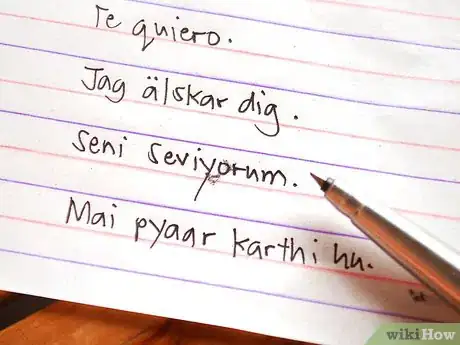 Te quiero.
Jag älskar dig.
Seni seviyorum.
Mai pyaar karthi hu.
wikiHow